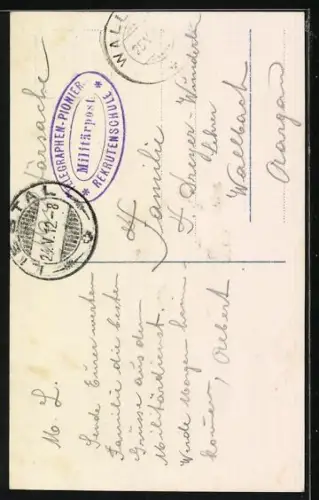 Militärsache
TELEGRAPHEN-PIONIER
Militärpost.
* REKRUTENSCHULE *
WALL
LIESTAL
22.V.12-8
Tit. Familie
F. Dreyer-Wunderlin
Lehrer
Wallbach
Aargau
M. L.
Sende Eurer werten
Familie die besten
Grüsse aus dem
Militärdienst.
Werde Morgen heim-
kommen, Albert